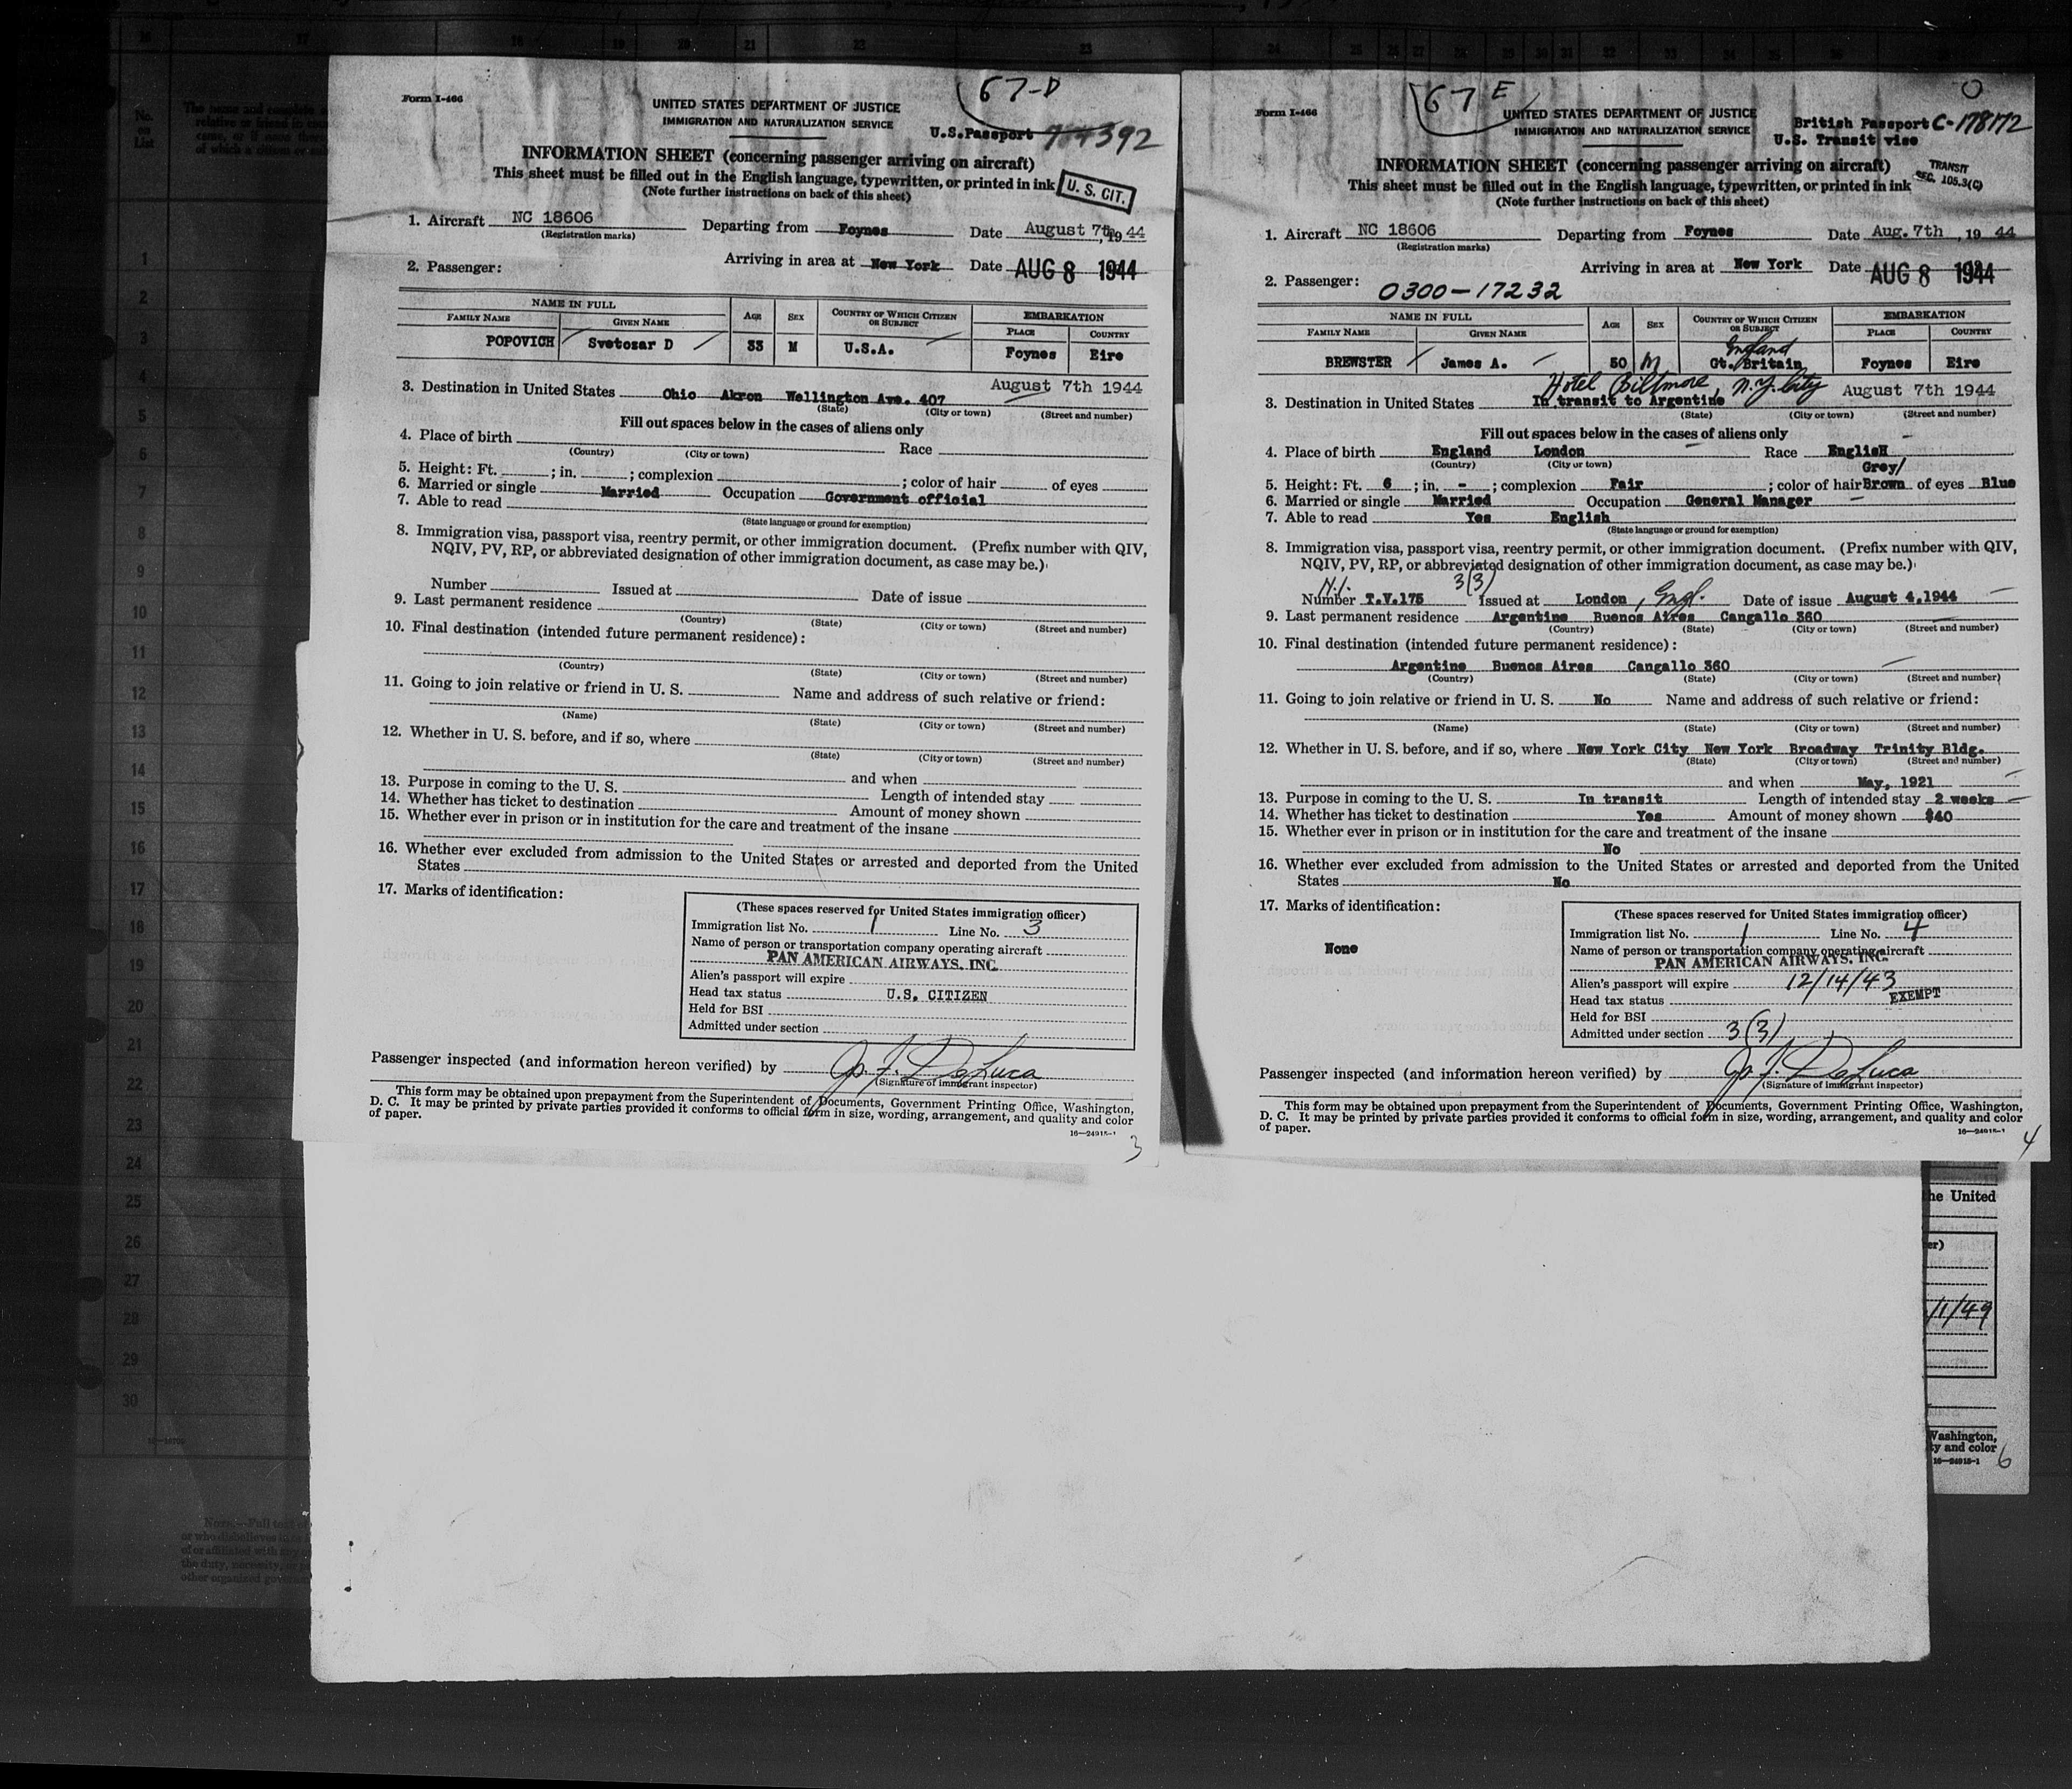 67-D
Form I-466
UNITED STATES DEPARTMENT OF JUSTICE
IMMIGRATION AND NATURALIZATION SERVICE
U.S.Passport 392
INFORMATION SHEET (concerning passenger arriving on aircraft)
This sheet must be filled out in the English language, typewritten, or printed in ink
U. S. CIT.
(Note further instructions on back of this sheet)
1. Aircraft NC 18606 Departing from Foynes Date August 7th, 19 44
(Registration marks)
2. Passenger: Arriving in area at New York Date AUG 8 1944
NAME IN FULL AGE SEX COUNTRY OF WHICH CITIZEN OR SUBJECT EMBARKATION
FAMILY NAME GIVEN NAME PLACE COUNTRY
POPOVICH Svetozar D 33 M U.S.A. Foynes Eire
August 7th 1944
3. Destination in United States Ohio Akron Wellington Ave. 407
(State) (City or town) (Street and number)
Fill out spaces below in the cases of aliens only
4. Place of birth Race
(Country) (City or town)
5. Height: Ft. ; in. ; complexion ; color of hair of eyes
6. Married or single Married Occupation Government official
7. Able to read
(State language or ground for exemption)
8. Immigration visa, passport visa, reentry permit, or other immigration document. (Prefix number with QIV,
NQIV, PV, RP, or abbreviated designation of other immigration document, as case may be.)
Number Issued at Date of issue
9. Last permanent residence
(Country) (State) (City or town) (Street and number)
10. Final destination (intended future permanent residence):
(Country) (State) (City or town) (Street and number)
11. Going to join relative or friend in U. S. Name and address of such relative or friend:
(Name) (State) (City or town) (Street and number)
12. Whether in U. S. before, and if so, where
(State) (City or town) (Street and number)
and when
13. Purpose in coming to the U. S. Length of intended stay
14. Whether has ticket to destination Amount of money shown
15. Whether ever in prison or in institution for the care and treatment of the insane
16. Whether ever excluded from admission to the United States or arrested and deported from the United
States
17. Marks of identification:
(These spaces reserved for United States immigration officer)
Immigration list No. 1 Line No. 3
Name of person or transportation company operating aircraft
PAN AMERICAN AIRWAYS, INC.
Alien's passport will expire
Head tax status U.S. CITIZEN
Held for BSI
Admitted under section
Passenger inspected (and information hereon verified) by Jo. F. DeLuca
(Signature of immigrant inspector)
This form may be obtained upon prepayment from the Superintendent of Documents, Government Printing Office, Washington,
D. C. It may be printed by private parties provided it conforms to official form in size, wording, arrangement, and quality and color
of paper.
16—24915-1
3
67 E
Form I-466
UNITED STATES DEPARTMENT OF JUSTICE
IMMIGRATION AND NATURALIZATION SERVICE
British Passport C-178172
U.S. Transit vise
INFORMATION SHEET (concerning passenger arriving on aircraft)
TRANSIT
SEC. 105.3(C)
This sheet must be filled out in the English language, typewritten, or printed in ink
(Note further instructions on back of this sheet)
1. Aircraft NC 18606 Departing from Foynes Date Aug. 7th, 19 44
(Registration marks)
Arriving in area at New York Date AUG 8 1944
2. Passenger: 0300-17232
NAME IN FULL AGE SEX COUNTRY OF WHICH CITIZEN OR SUBJECT EMBARKATION
FAMILY NAME GIVEN NAME PLACE COUNTRY
England
BREWSTER James A. 50 M Gt. Britain Foynes Eire
Hotel Biltmore, N.Y. City August 7th 1944
3. Destination in United States In transit to Argentine
(State) (City or town) (Street and number)
Fill out spaces below in the cases of aliens only
4. Place of birth England London Race English
(Country) (City or town)
Grey/
5. Height: Ft. 6 ; in. - ; complexion Fair ; color of hair Brown of eyes Blue
6. Married or single Married Occupation General Manager
7. Able to read Yes English
(State language or ground for exemption)
8. Immigration visa, passport visa, reentry permit, or other immigration document. (Prefix number with QIV,
NQIV, PV, RP, or abbreviated designation of other immigration document, as case may be.)
3(3)
Number T.V.175 Issued at London, Engl. Date of issue August 4,1944
9. Last permanent residence Argentine Buenos Aires Cangallo 360
(Country) (State) (City or town) (Street and number)
10. Final destination (intended future permanent residence):
Argentine Buenos Aires Cangallo 360
(Country) (State) (City or town) (Street and number)
11. Going to join relative or friend in U. S. No Name and address of such relative or friend:
(Name) (State) (City or town) (Street and number)
12. Whether in U. S. before, and if so, where New York City New York Broadway Trinity Bldg.
(State) (City or town) (Street and number)
and when May, 1921
13. Purpose in coming to the U. S. In transit Length of intended stay 2 weeks
14. Whether has ticket to destination Yes Amount of money shown $40
15. Whether ever in prison or in institution for the care and treatment of the insane
No
16. Whether ever excluded from admission to the United States or arrested and deported from the United
States No
17. Marks of identification:
None
(These spaces reserved for United States immigration officer)
Immigration list No. 1 Line No. 4
Name of person or transportation company operating aircraft
PAN AMERICAN AIRWAYS, INC.
Alien's passport will expire 12/14/43
Head tax status EXEMPT
Held for BSI
Admitted under section 3(3)
Passenger inspected (and information hereon verified) by Jo. F. DeLuca
(Signature of immigrant inspector)
This form may be obtained upon prepayment from the Superintendent of Documents, Government Printing Office, Washington,
D. C. It may be printed by private parties provided it conforms to official form in size, wording, arrangement, and quality and color
of paper.
16—24915-1
4
he United
er)
/1/49
Washington,
ty and color
16—24915-1
6